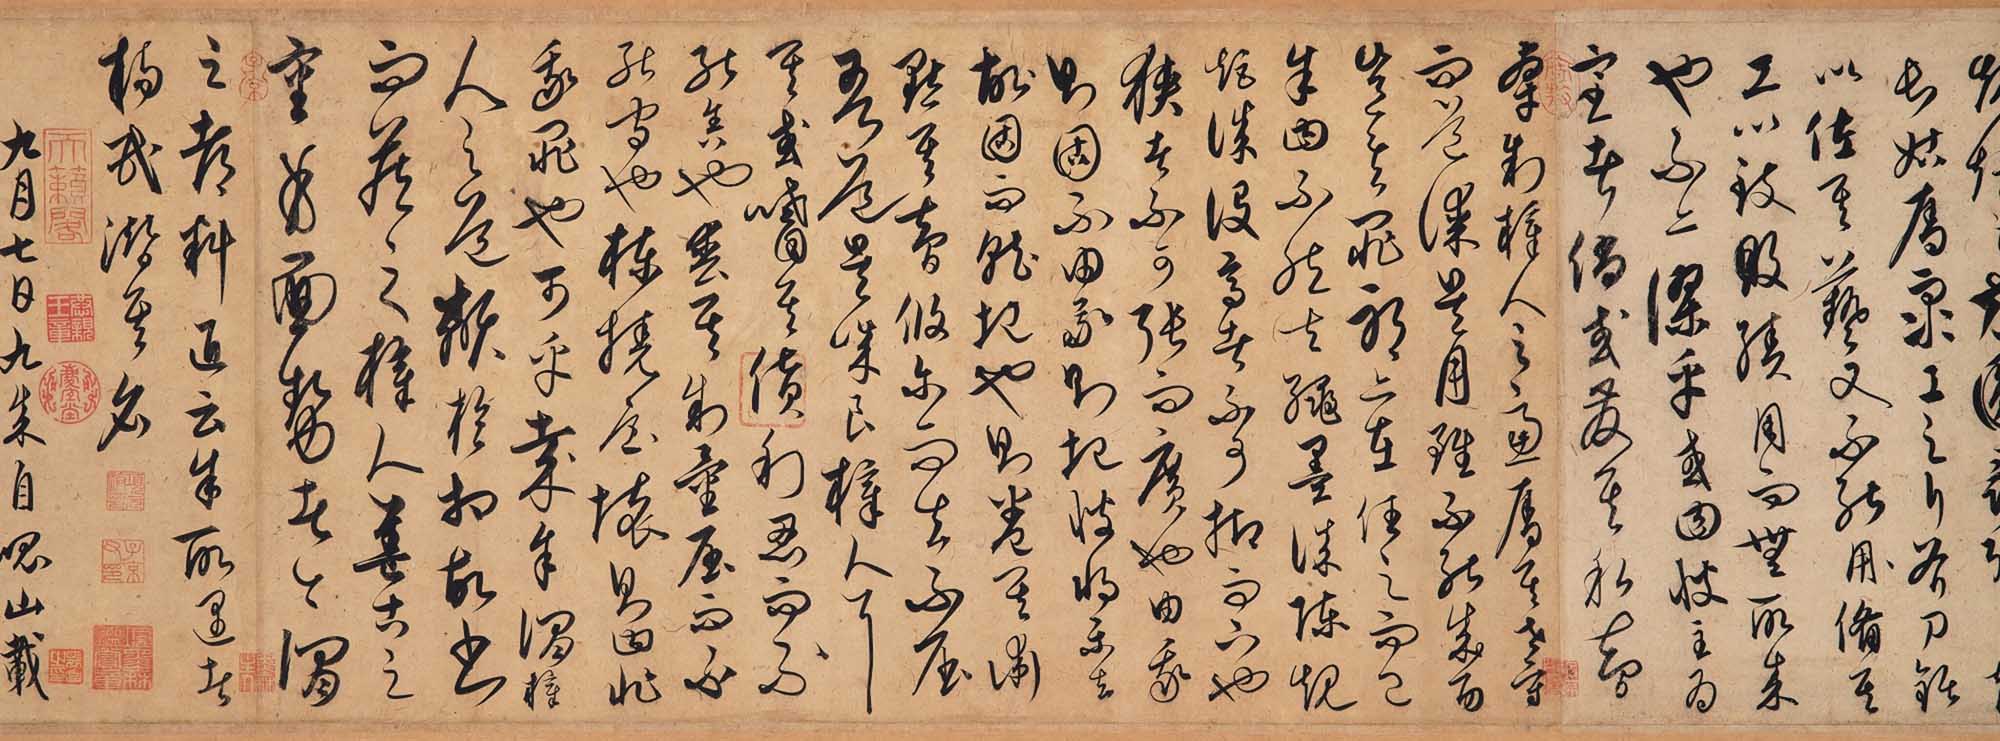 長姑奪衆工之斤斧刀鋸
以佐其藝又不能用備其
工以致敗績用而無所成
也不亦謬乎或曰彼主為
室者儻或發其私智
牽制梓人之慮奪其世守
而道謀是用雖不能成功
豈其罪耶亦在任之而已
余曰不然夫繩墨誠陳規
矩誠設高者不可抑而下也
狹者不可張而廣也由我
則固不由我則圮彼將樂去
固而就圮也則卷其術
默其智悠爾而去不屈
吾道是誠良梓人耳
其或嗜其貨利忍而不
能舍也喪其制量屈而不
能守也棟橈屋壞則曰非
我罪也可乎哉余謂梓
人之道類於相故書
而藏之梓人蓋古之
審曲面勢者今謂
之都料匠云余所遇者
楊氏潛其名
九月七日九來自山載